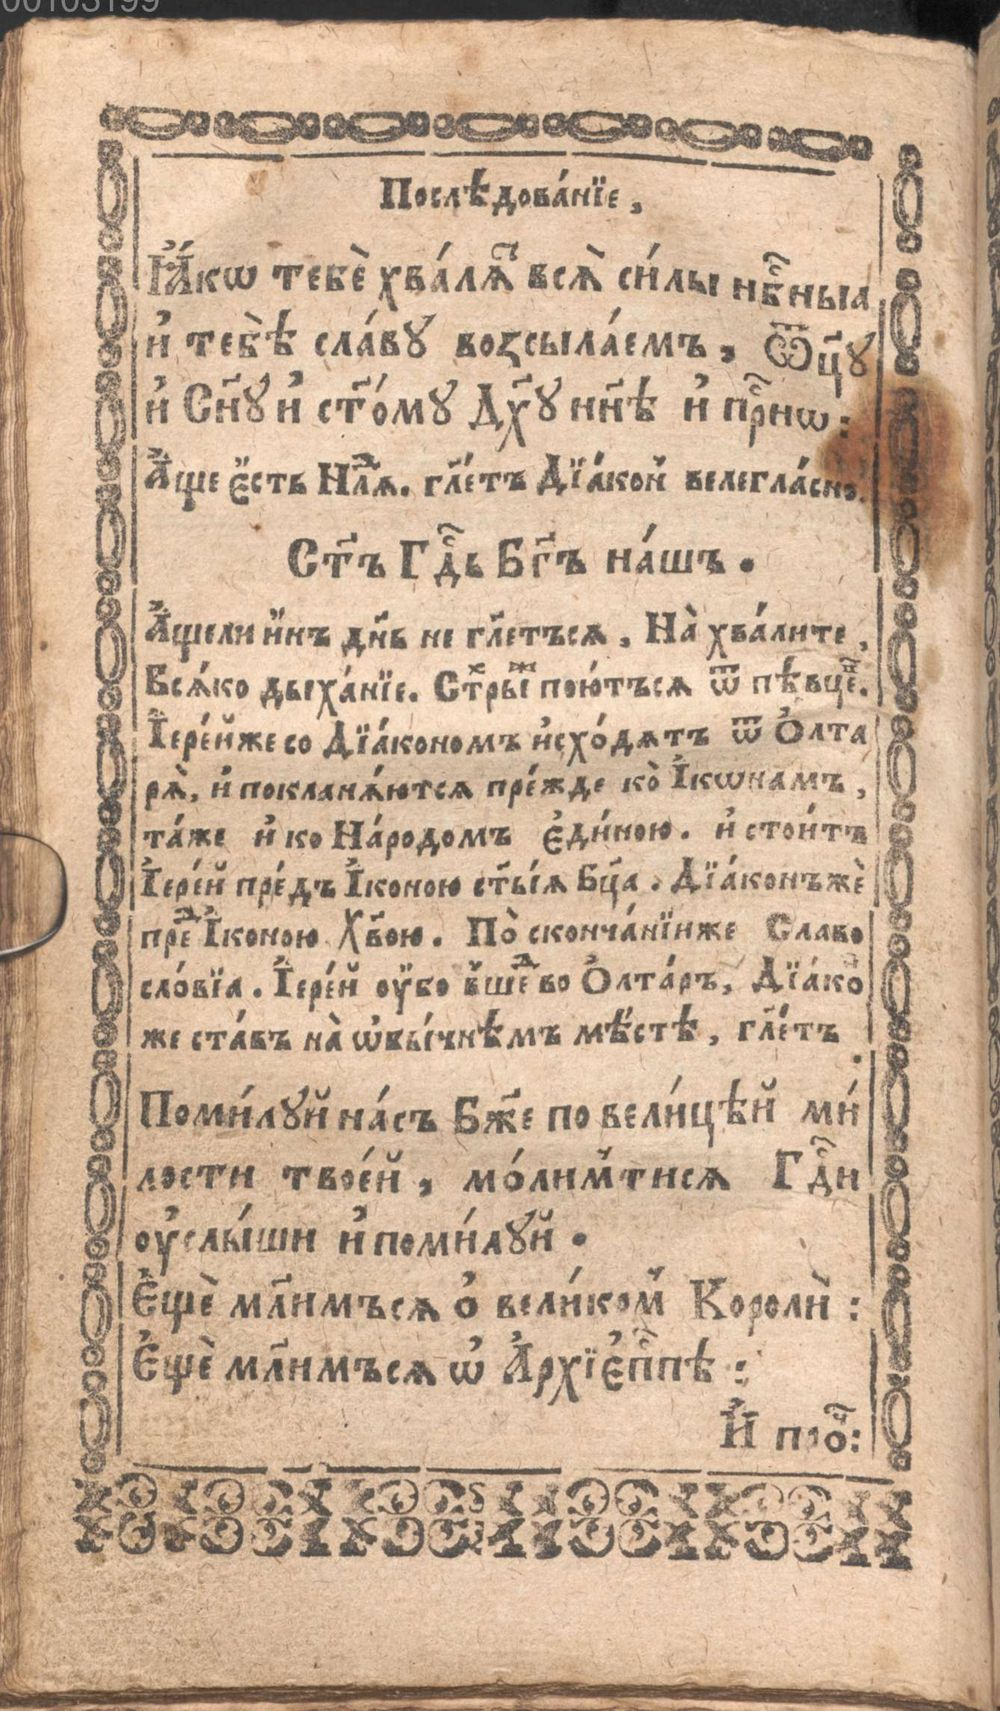 00103199
Послѣдова́нїе,
Ꙗ҆́кѡ тебѐ хва́лѧⷮ всѧ̀ си́лы нбⷭ҇ныѧ
и҆ тебѣ̀ сла́вꙋ воⁿꙁсыла́емъ, Ѿц҃ꙋ
и҆ Сн҃ꙋ и҆ ст҃о́мꙋ Дх҃ꙋ нн҃ѣ и҆ прⷭ҇нѡ:
А҆́ще є҆́сть Нлⷣѧ. гл҃етъ Дїа́кон̾ велегла́сно.
Ст҃ъ Гдⷭ҇ь Бг҃ъ на́шъ.
А҆́щели и҆́нъ дн҃ь не гл҃етъсѧ, На̀ хва́лите,
Всѧ́ко дыха́нїе. Стⷯры̑ пою́тъсѧ ѿ пѣвцеⷡ҇.
І҆ере́йже со Дїа́кономъ и҆схо́дѧтъ ѿ Ѻ҆лта
рѧ̀, и҆ покланѧ́ютсѧ пре́жде ко̀ І҆кѡнамъ,
та́же и҆ ко На́родомъ є҆ди́ною. и҆ стои́тъ
І҆ере́й пре́дъ І҆коною ст҃ы́ѧ Бц҃а. Дїа́конъжѐ
преⷣ І҆коною Хв҃ою. По̀ сконча́нїиже Славо
сло́вїа. І҆ере́й оу҆́бо в̾шеⷣ во Ѻ҆лта́ръ, Дїа́коⷩ
же ста́въ на̀ ѡ҆бы́чнѣмъ мѣ́стѣ, гл҃етъ.
Поми́лꙋй на́съ Бж҃е по вели́цѣй ми́
лости твое́й, мо́лим̾тисѧ Гдⷭ҇и
оу҆слы́ши и҆ поми́лꙋй.
Є҆щѐ мл҃имъсѧ ѻ҆ вели́ком̾ Короли̑:
Є҆щѐ мл҃имъсѧ ѡ҆ А҆рхїє҆пⷭ҇пѣ:
И҆ проⷱ҇: